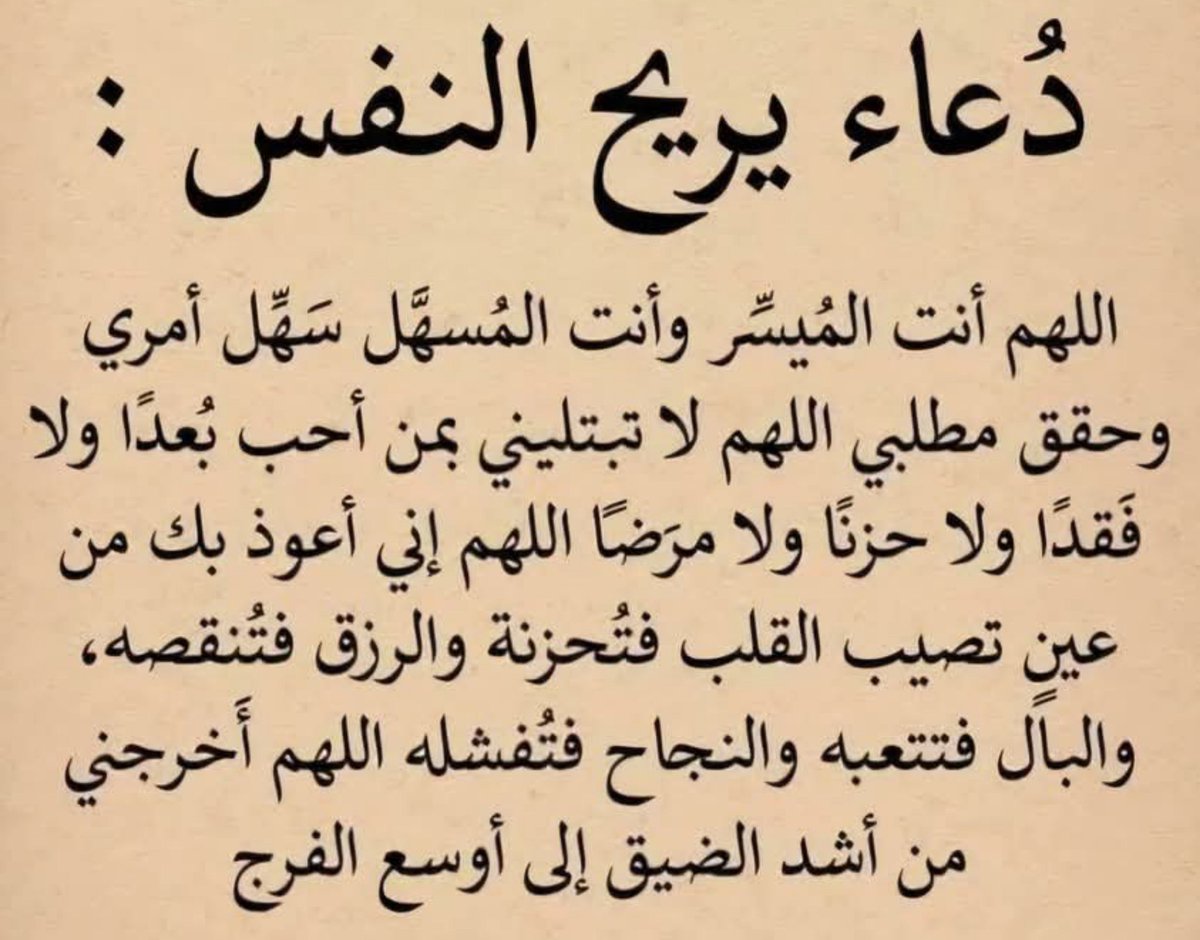 دُعاء يريح النفس :
اللهم أنت المُيسِّر وأنت المُسهَّل سَهِّل أمري
وحقق مطلبي اللهم لا تبتليني بمن أحب بُعدًا ولا
فَقدًا ولا حزنًا ولا مرَضًا اللهم إني أعوذ بك من
عين تصيب القلب فتُحزنة والرزق فتُنقصه،
والبالً فتتعبه والنجاح فتُفشله اللهم أَخرجني
من أشد الضيق إلى أوسع الفرج